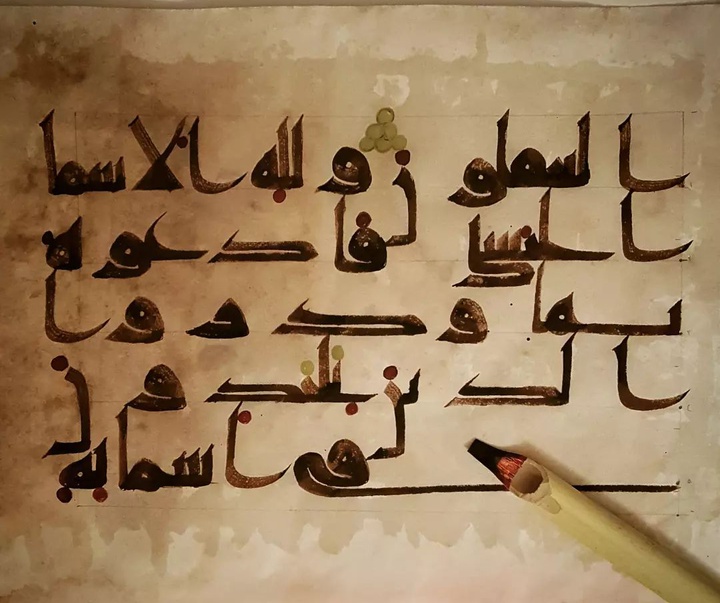 الغفلون ولله الاسما
الحسنى فادعوه
بها وذروا
الذين يلحدون
فى اسمائه